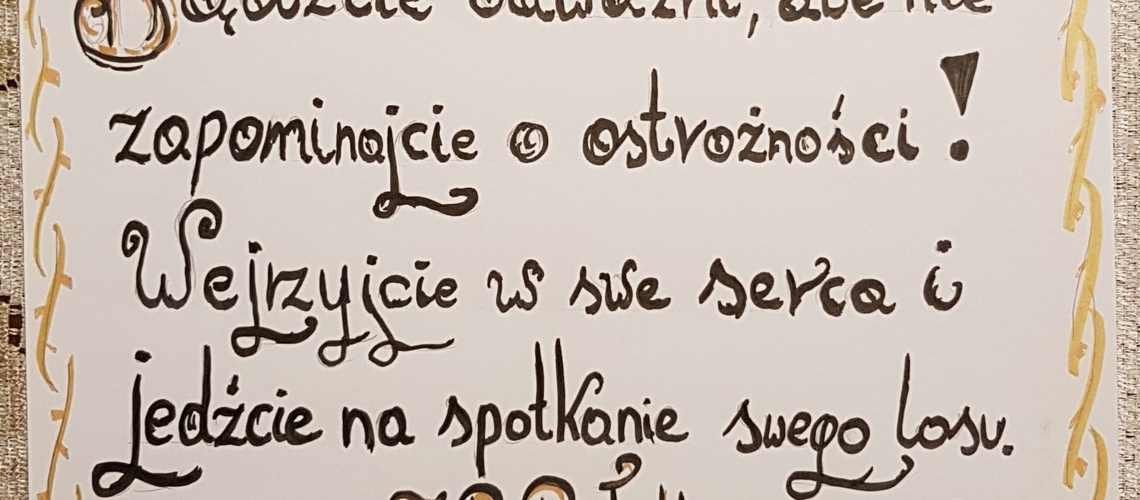 Bądźcie odważni, ale nie
zapominajcie o ostrożności!
Wejrzyjcie w swe serca i
jedźcie na spotkanie swego losu.